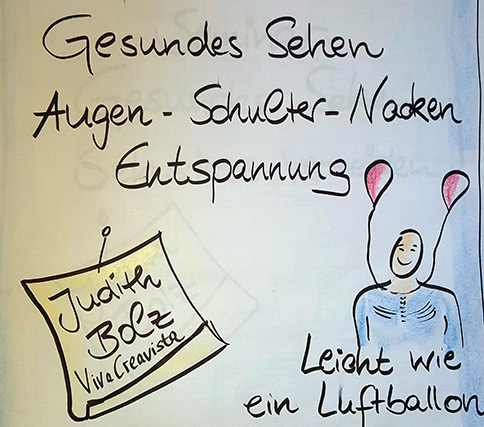 Gesundes Sehen
Augen - Schulter - Nacken
Entspannung
Judith
Bolz
VivaCreavista
Leicht wie
ein Luftballon